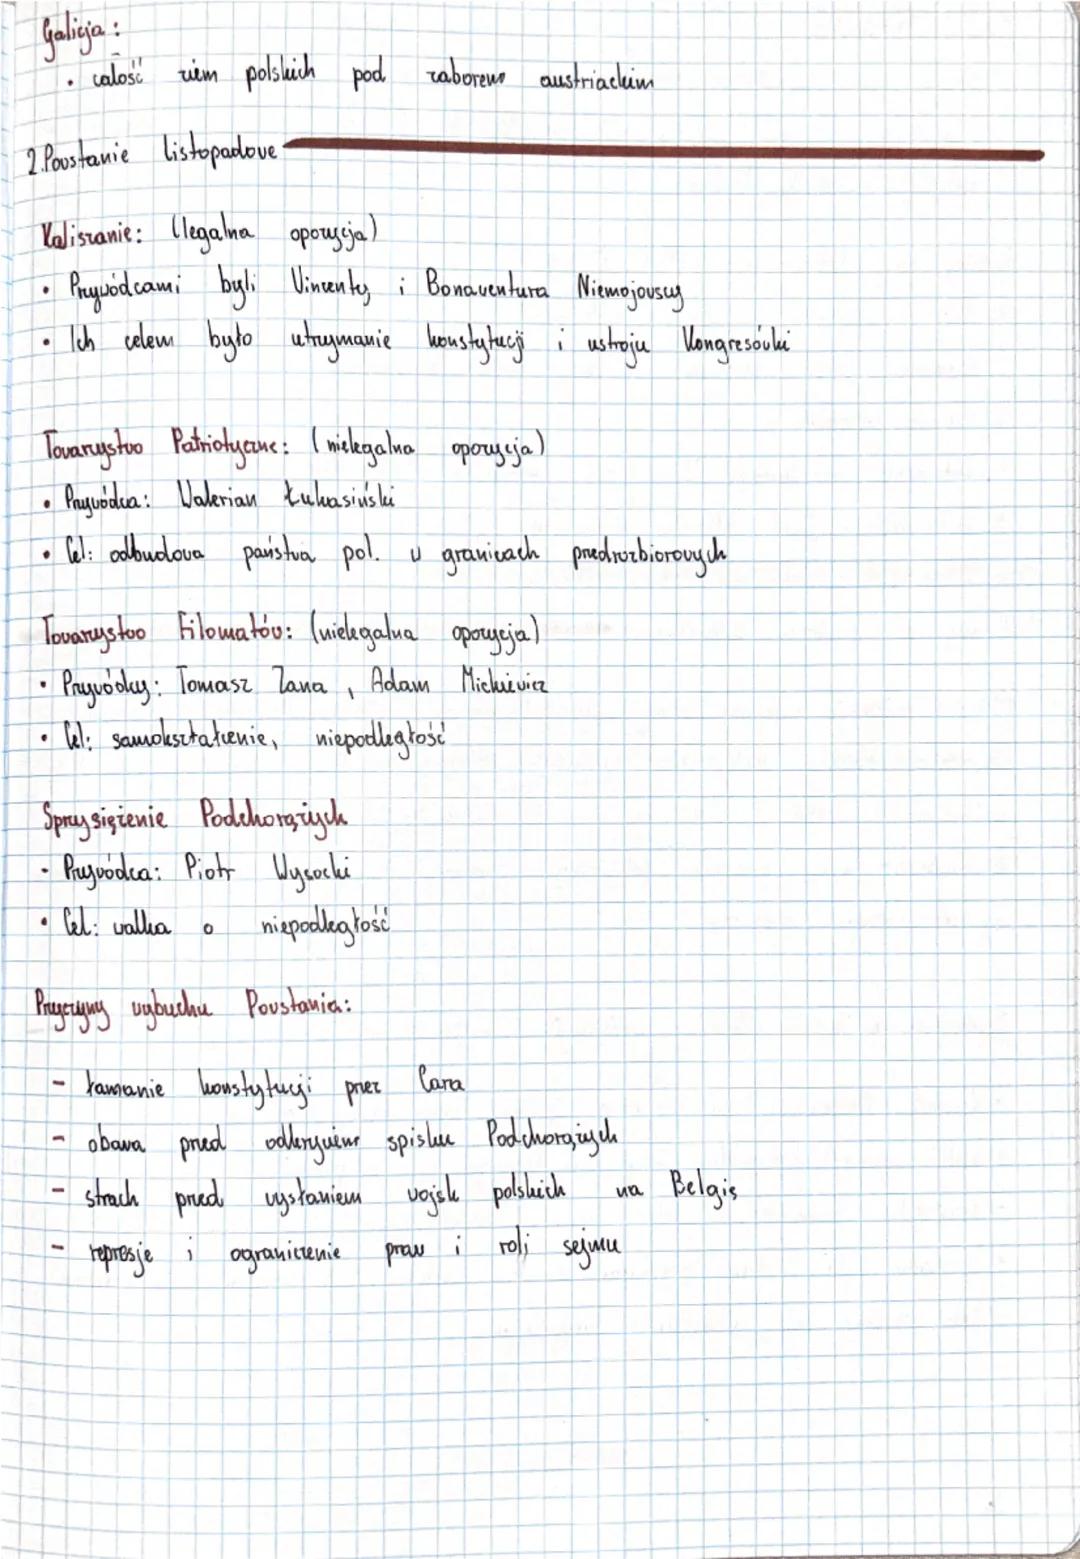 Galicja:
• całość ziem polskich pod zaborem austriackim
2. Powstanie listopadowe
Kaliszanie: (legalna opozycja)
• Przywódcami byli Wincenty i Bonawentura Niemojowscy
• Ich celem było utrzymanie konstytucji i ustroju Kongresówki
Towarzystwo Patriotyczne: (nielegalna opozycja)
• Przywódca: Walerian Łukasiński
• Cel: odbudowa państwa pol. w granicach przedrozbiorowych
Towarzystwo Filomatów: (nielegalna opozycja)
• Przywódcy: Tomasz Zana, Adam Mickiewicz
• Cel: samokształcenie, niepodległość
Sprzysiężenie Podchorążych
- Przywódca: Piotr Wysocki
• Cel: walka o niepodległość
Przyczyny wybuchu Powstania:
- łamanie konstytucji przez Cara
- obawa przed odkryciem spisku Podchorążych
- strach przed wysłaniem wojsk polskich na Belgię
- represje i ograniczenie praw i roli sejmu